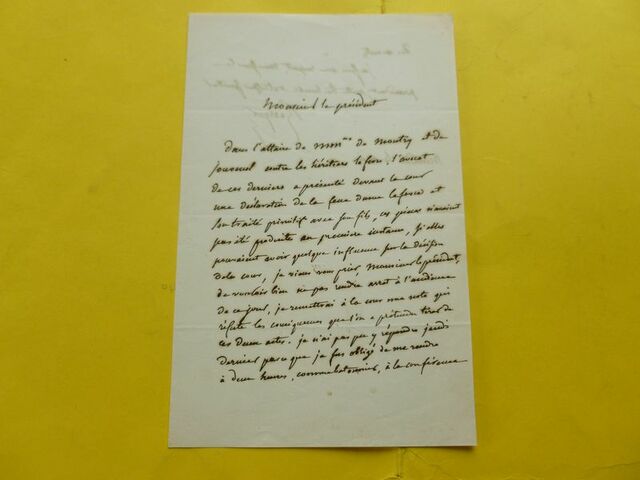 Monsieur le président
Dans l'affaire de MMmes de Montry et de
jouvenel contre les héritiers lefevre, l'avocat
de ces derniers a présenté devant la cour
une déclaration de la feue dame lefevre et
son traité primitif avec son fils, ces pièces n'avaient
pas été produites en première instance, si elles
pouvaient avoir quelque influence sur la décision
de la cour, je viens vous prier, Monsieur le président,
de vouloir bien ne pas rendre arrêt à l'audience
de ce jour, je remettrai à la cour une note qui
réfute les conséquences que l'on a prétendu tirer de
ces deux actes. je n'ai pas pu y répondre jeudi
dernier parce que je fus obligé de me rendre
à deux heures, comme batonnier, à la conférence